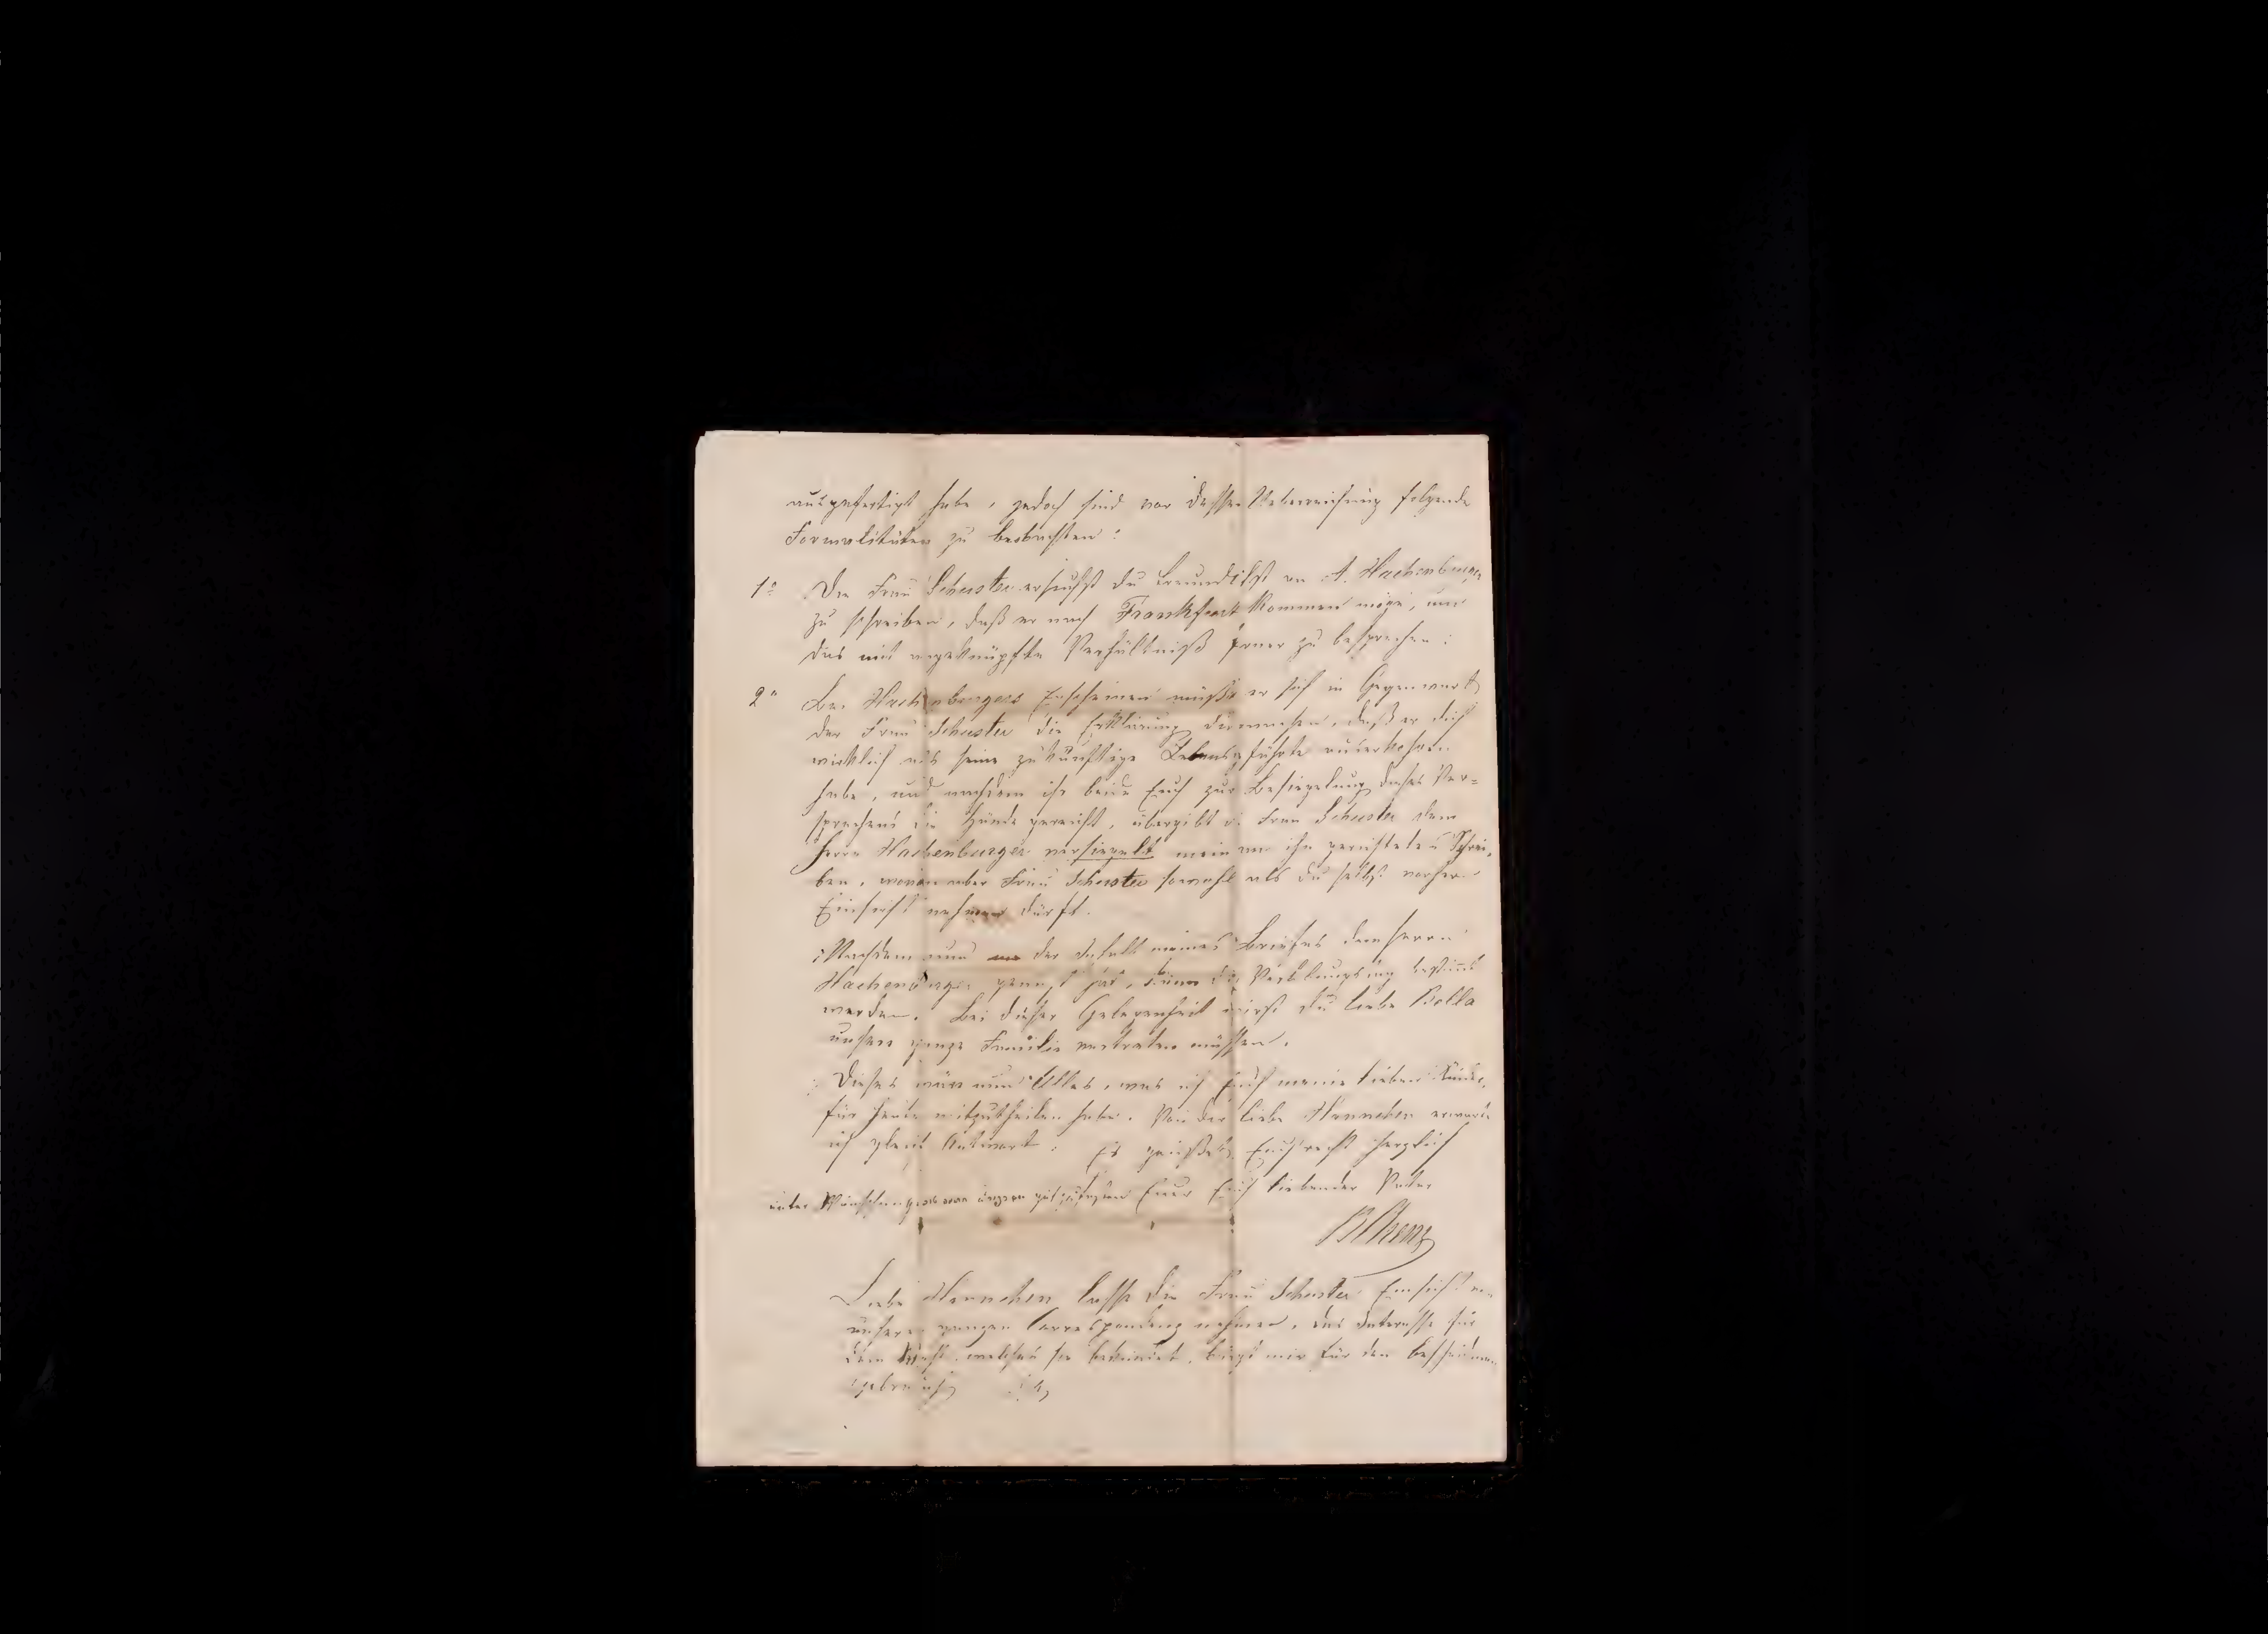 ausgefertigt habe, jedoch sind vor dessen Ueberreichung folgende
Formalitäten zu beobachten:
1o Die Frau Schuster ersuchst du freundlichst an A. Hachenburger
zu schreiben, daß er nach Frankfurt kommen möge, um
das mit angeknüpfte Verhältniß ferner zu besprechen:
2o Bei Hachenburgers Erscheinen müßte er sich in Gegenwart
der Frau Schuster die Erklärung machen, daß er dich
wirklich als seine zukünftige Lebensgefährte auserkohren
habe, und nachdem ihr beide Euch zur Besiegelung dieses Ver=
sprechens die Hände gereicht, übergibt die Frau Schuster dem
Herrn Hachenburger versiegelt mein an ihn gerichtetes Schrei=
ben, wovon aber Frau Schuster sowohl als du selbst vorher
Einsicht nehmen dürft.
Nachdem nun der Inhalt meines Briefes dem Herrn
Hachenburger genügt hat, kann die Verlobung bestimt
werden. Bei dieser Gelegenheit wirst du liebe Bella
unsere ganze Familie vertreten müssen.
Dieses wäre nun Alles, was ich Euch meine lieben Kinder,
für heute mitzutheilen habe. Von der liebe Hannchen erwarte
ich gleich Antwort. Es grüßet Euch recht herzlich
unter Euer Euch liebender Vater
Liebe Hannchen lasse die Frau Schuster Einsicht von
unserer ganzen Correspondenz nehmen, das Interesse für
dein Wohl, welches sie bekundet, bürgt mir für den bescheidenen
Gebrauch